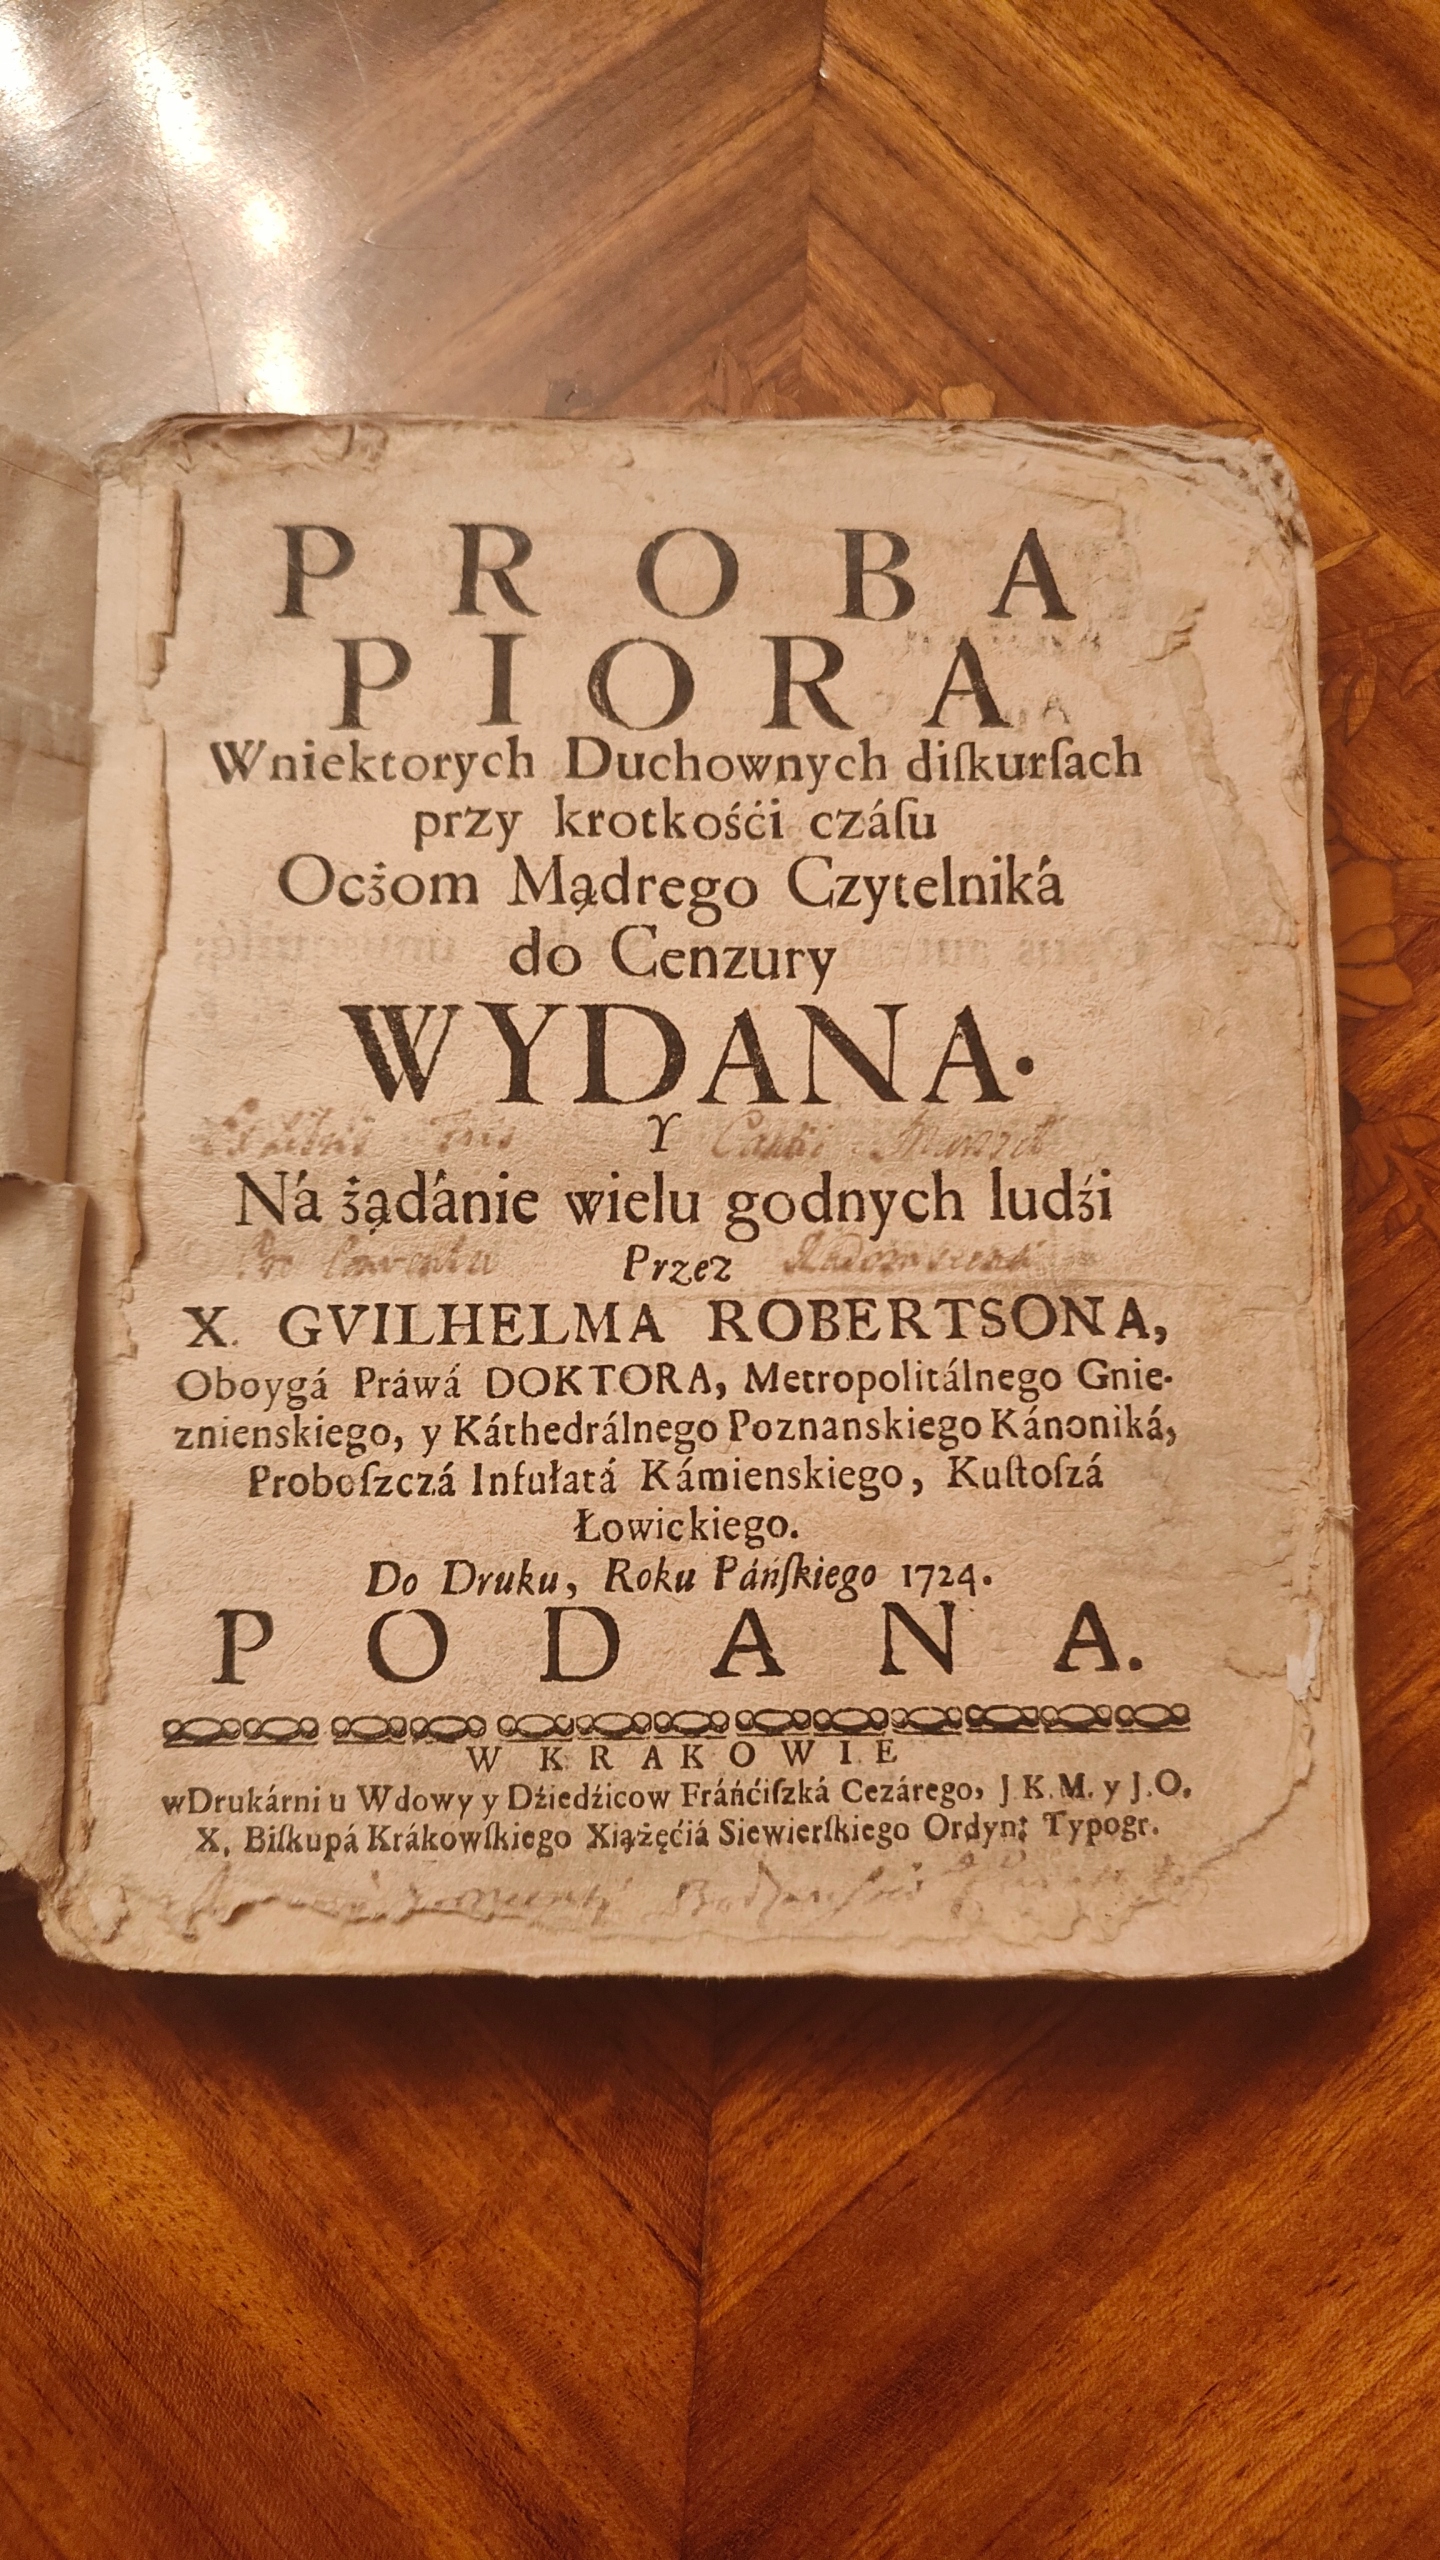 PROBA
PIORA
Wniektorych Duchownych diſkurſach
przy krotkośći czáſu
Ocżom Mądrego Czytelniká
do Cenzury
WYDANA.
Y
Ná żądánie wielu godnych ludźi
Pro Conventu Przez
X. GVILHELMA ROBERTSONA,
Oboygá Práwá DOKTORA, Metropolitálnego Gnie-
znienskiego, y Káthedrálnego Poznanskiego Kánoniká,
Proboſzczá Infułatá Kámienskiego, Kuſtoſzá
Łowickiego.
Do Druku, Roku Páńſkiego 1724.
PODANA.
W KRAKOWIE
wDrukárni u Wdowy y Dźiedźicow Fráńćiſzká Cezárego, J K. M. y J. O.
X. Biſkupá Krákowſkiego Xiążęćiá Siewierſkiego Ordyn: Typogr.